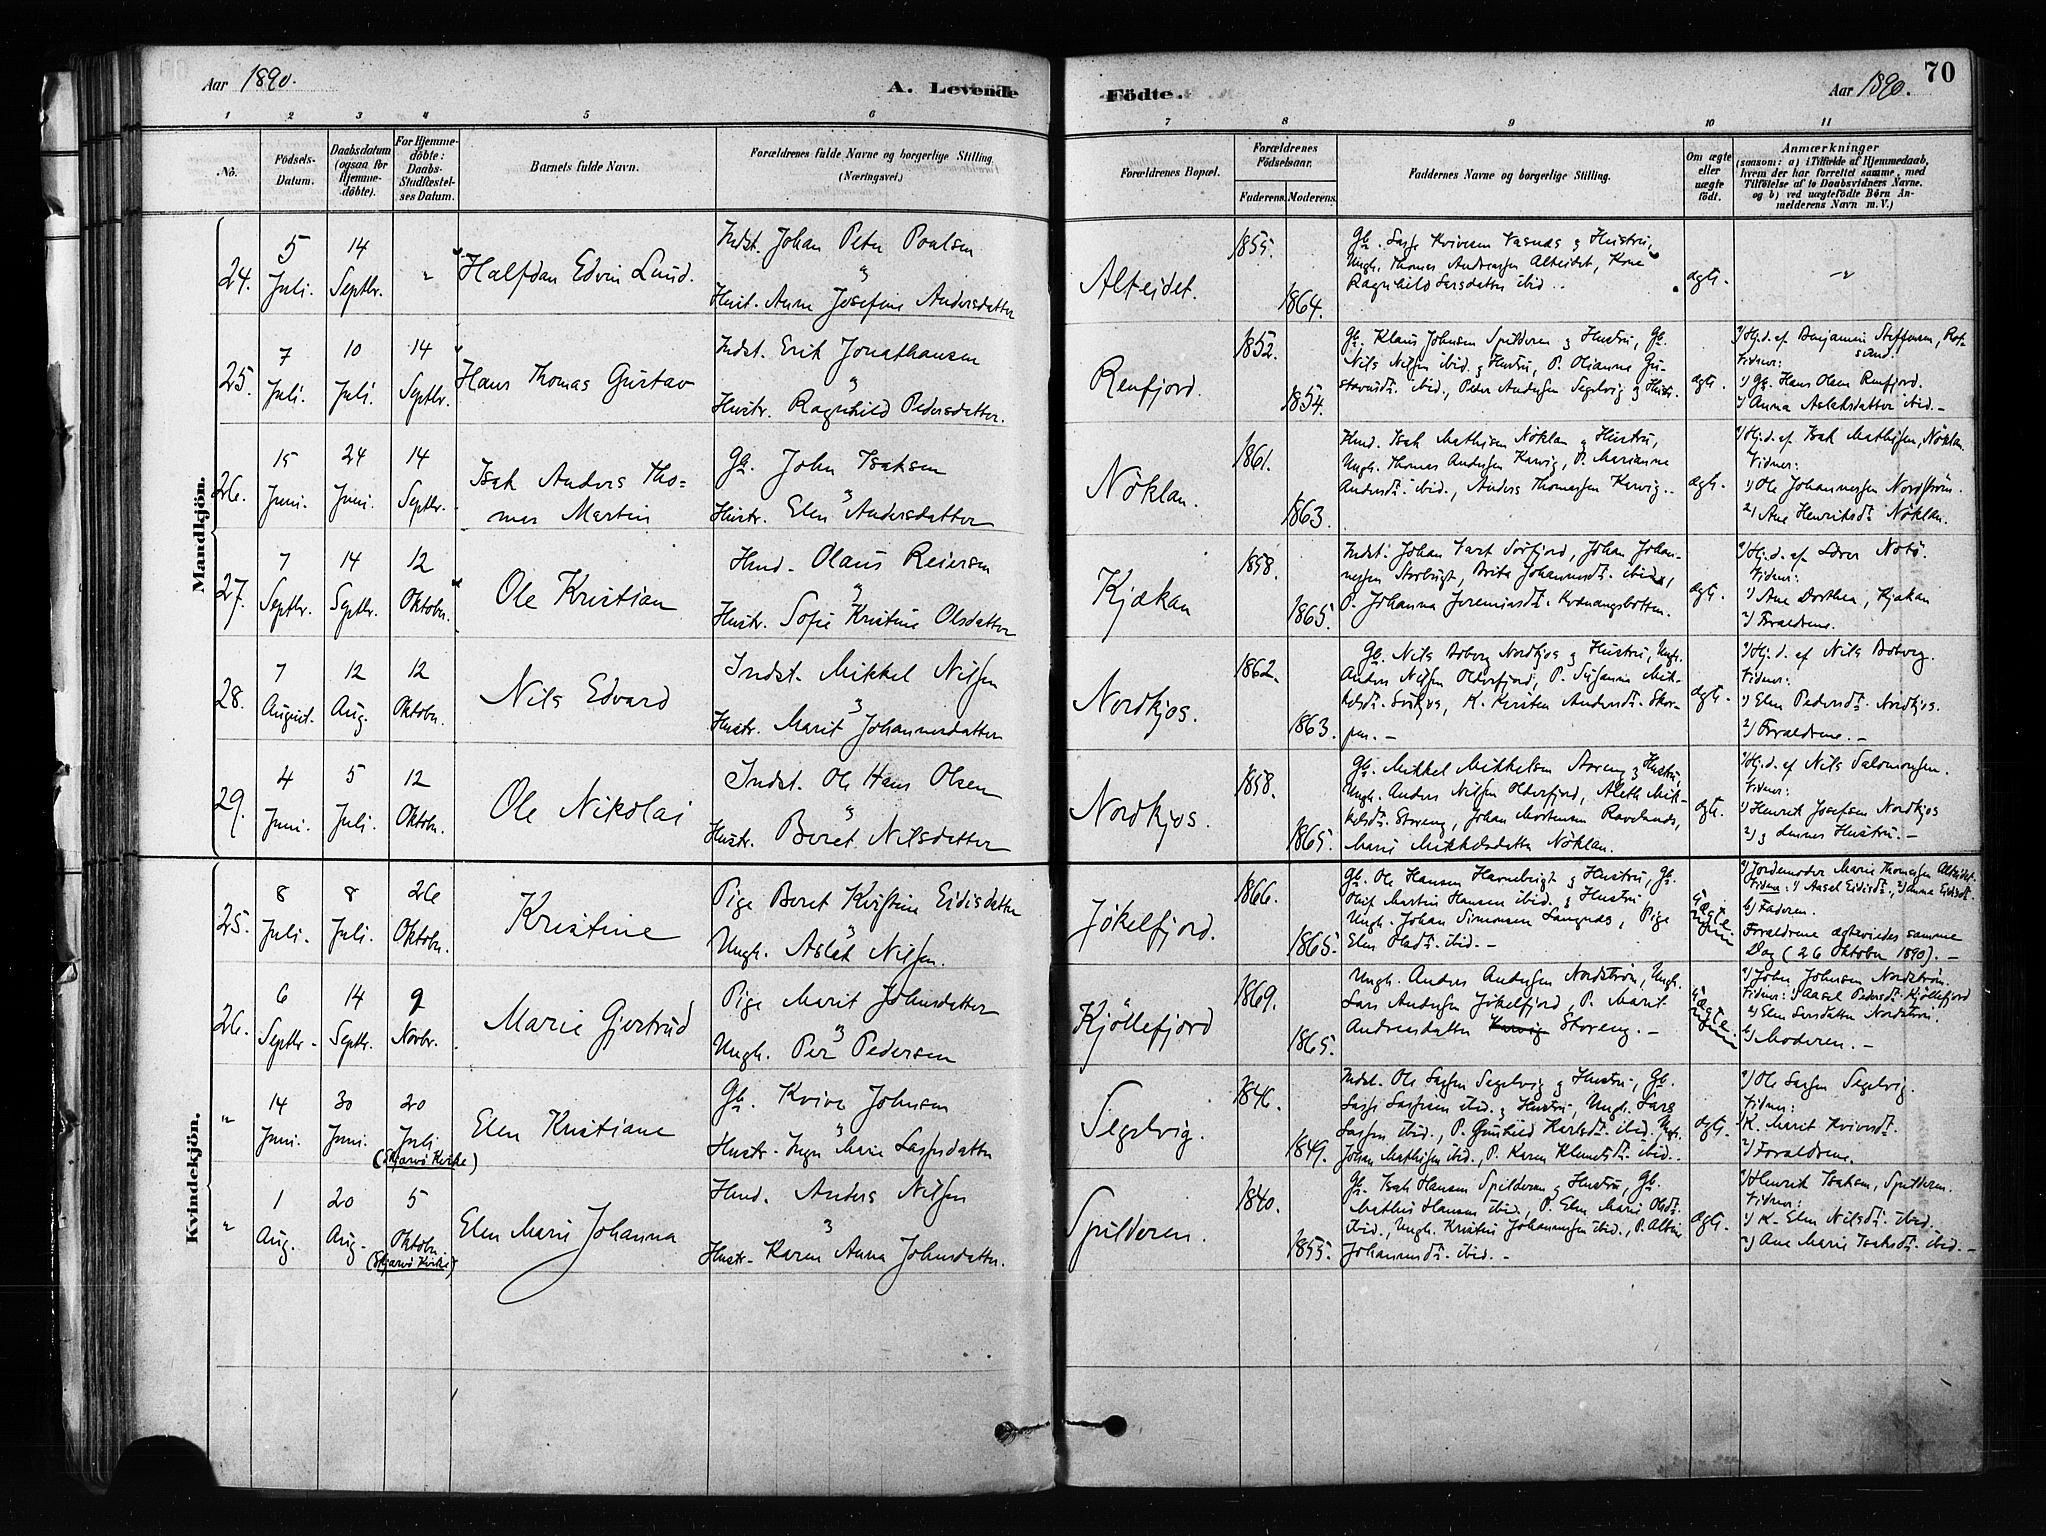 Aar 1890.
A. Levende
Födte.
Aar 1890.
70
1 2 3 4 5 6 7 8 9 10 11
No.
Födsels-
Datum.
Daabsdatum
(ogsaa for
Hjemme-
döbte).
For Hjemme-
döbte:
Daabs-
Stadfæstel-
ses Datum.
Barnets fulde Navn.
Forældrenes fulde Navne og borgerlige Stilling
(Næringsvei.)
Forældrenes Bopæl.
Forældrenes
Födselsaar.
Faderens. Moderens.
Faddernes Navne og borgerlige Stilling.
Om ægte
eller
uægte
födt.
Anmærkninger
(saasom: a) i Tilfælde af Hjemmedaab,
hvem der har forrettet samme, med
Tilföielse af to Daabsvidners Navne,
og b) ved uægtefödte Börn An-
melderens Navn m. V.)
Mandkjön.
24.
5
Juli.
14
Septbr.
"
Halfdan Edvin Lund.
Indst. Johan Peter Poulsen
"
Hust. Anne Josefine Andersdatter
Alteidet.
1855.
1864.
Gb. Lasse Kvivesen Vasnæs og Hustru,
Ungk. Thomas Andreassen Alteidet, Kone
Ragnhild Larsdatter ibid..
ægte.
"
25.
7
Juli.
10
Juli.
14
Septbr.
Hans Thomas Gustav
Indst. Erik Jonathansen
"
Hustr. Ragnhild Pedersdatter.
Renfjord.
1852.
1854.
Gb. Klaus Johnsen Spilderen og Hustru, Gb.
Nils Nilsen ibid. og Hustru, P. Olianna Gu-
stavsdt. ibid., Peter Andersen Segelvig og Hustr.
ægte.
a) Hj.d. af Benjamin Steffensen, Rot-
sund.
Vidner:
1) Gb. Hans Olsen Renfjord.
2) Anna Aslaksdatter ibid. –
26.
15
Juni.
24
Juni.
14
Septbr.
Isak Anders Tho=
mas Martin
Gb. John Isaksen
"
Hustr. Elen Andersdatter
Nöklan.
1861.
1863.
Hmd. Isak Mathisen Nöklan og Hustru,
Ungk. Thomas Andersen Karvig, P. Marianne
Andersdt. ibid., Anders Thomassen Karvig..
ægte.
a) Hj.d. af Isak Mathisen, Nöklan.
Vidner:
1) Ole Johannessen Nordström.
2) Ane Henriksdt. Nöklan.
27.
7
Septbr.
14
Septbr.
12
Oktobr.
Ole Kristian
Hmd. Olaus Reiersen
"
Hustr. Sofie Kristine Olsdatter
Kjækan
1858.
1865.
Indst. Johan Vart Sörfjord, Johan Johan-
nessen Storbugt, Brita Johannesdt. ibid,
P. Johanna Jeremiasdt. Kvænangsbotten.
ægte.
a) Hj.d. af Lærer Notö.
Vidner:
1) Ane Dorthea, Kjækan
2) Forældrene.
28.
7
August.
12
Aug.
12
Oktobr.
Nils Edvard
Indst. Mikkel Nilsen
"
Hustr. Marit Johannesdatter
Nordkjos.
1862.
1863.
Gb. Nils Boberg Nordkjos og Hustru, Ungk.
Anders Nilsen Olderfjord, P. Susanne Mik-
kelsdt. Sörkjos, K. Kirsten Andersdt. Skor-
pen. –
ægte.
a) Hj.d. af Nils Boberg.
Vidner:
1) Elen Pedersdt. Nordkjos.
2) Forældrene. –
29.
4
Juni.
5
Juli.
12
Oktobr.
Ole Nikolai
Indst. Ole Hans Olsen
"
Hustr. Beret Nilsdatter
Nordkjos.
1858.
1865.
Gb. Mikkel Mikkelsen Storeng og Hustru,
Ungk. Anders Nilsen Olderfjord, Aleth Mik-
kelsdt. Storeng, Johan Mortensen Ravelnæs,
Marie Mikkelsdatter Nöklan.
ægte.
a) Hj.d. af Nils Salomonsen.
Vidner:
1) Henrik Josefsen Nordkjos
2) og dennes Hustru. –
Kvindekjön.
25.
8
Juli.
8
Juli.
26
Oktobr.
Kristine
Pige Beret Kristine Eidisdatter
"
Ungk. Aslak Nilsen.
Jökelfjord.
1866.
1865.
Gb. Ole Hansen Havnebugt og Hustru, Gb.
Oluf Martin Hansen ibid. og Hustru,
Ungk. Johan Simonsen Langnæs, Pige
Elen Olsdt. ibid. –
Uægte
a) Jordemoder Marie Thomassen Alteidet.
Vidner: 1) Aasel Eidisdt., 2) Anna Eidisdt.
b) Faderen.
Forældrene ægteviedes samme
Dag (26 Oktober 1890). –
26.
6
Septbr.
14
Septbr.
9
Novbr.
Marie Gjertrud
Pige Marit Johnsdatter
"
Ungk. Per Pedersen
Kjöllefjord
1869.
1865.
Ungk. Anders Andersen Nordström, Ungk.
Lars Andersen Jökelfjord, P. Marit
Andreasdatter Karvig Storeng. –
Uægte
a) John Johnsen Nordström.
Vidner: 1) Aasel Pedersdt. Kjöllefjord
2) Elen Larsdatter Nordström.
b) Moderen. –
"
14
Juni.
30
Juni.
20
Juli
(Skjærvö Kirke)
Elen Kristiane
Gb. Kvive Johnsen
"
Hustr. Inger Marie Lassesdatter
Segelvig.
1846.
1849.
Indst. Ole Lassen Segelvig og Hustru, Gb.
Lasse Lassesen ibid. og Hustru, Ungk. Lars
Lassen ibid., P. Gunhild Karlsdt. ibid., Ungk.
Johan Mathisen ibid., P. Karen Klemetsdt. ibid..
ægte.
a) Ole Lassen Segelvig.
Vidner:
K. Marit Kvivesdt.
2) Forældrene.
"
1
Aug.
20
Aug.
5
Oktobr
(Skjærvö Kirke)
Elen Marie Johanna
Hmd. Anders Nilsen
"
Hustr. Karen Anna Johnsdatter.
Spilderen.
1840.
1855.
Gb. Isak Hansen Spilderen og Hustru, Gb.
Mathis Hansen ibid., P. Elen Marie Olsdt.
ibid., Ungk. Kristian Johannessen ibid., P.
Johannesdt. ibid. –
ægte.
a) Henrik Isaksen, Spilderen.
Vidner:
1) K. Elen Nilsdt. ibid.
2) Ane Marie Isaksdt. ibid. –